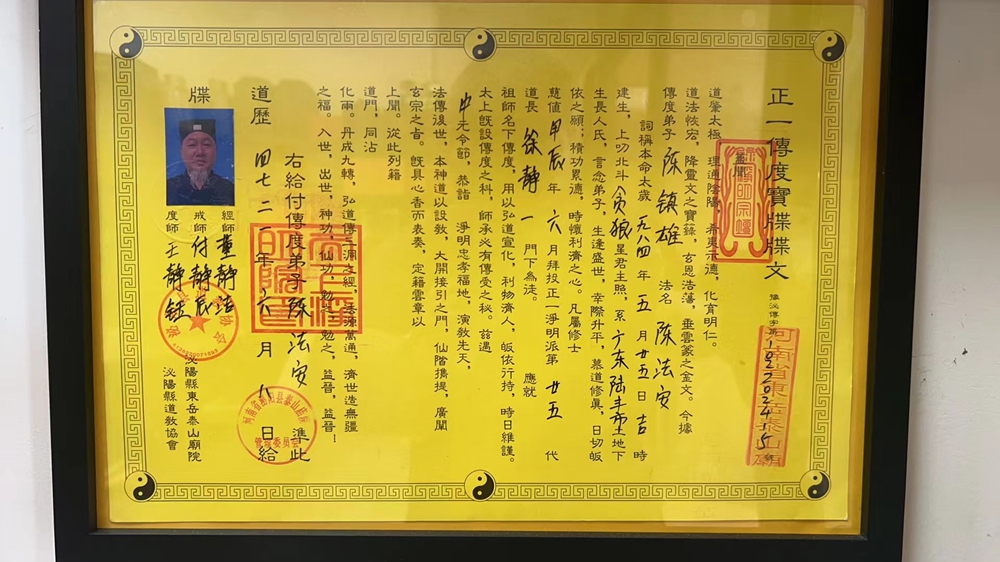 正一傳度寶牒牒文
道肇太極，理通陰陽，希夷示德，化育明仁。
道法恢宏，降靈文之寶籙，玄恩浩蕩，垂雲篆之金文。今據
傳度弟子 陈镇雄 法名 陈法安
詞稱本命太歲 一九八四 年 五 月 廿五 日 吉 時
建生，上叨北斗 贪狼 星君主照，系 广东陆丰市 地下
生長人氏，言念弟子，生逢盛世，幸際升平，慕道修真，日切皈
依之願；積功累德，時懷利濟之心。凡屬修士
慈值 甲辰 年 六 月拜投正一淨明派第 廿五 代
道長 徐静一 門下為徒。 應就
祖師名下傳度，用以弘道宣化，利物濟人，皈依行持，時日維謹。
太上既設傳度之科，師承必有傳愛之秘。兹遇
中元令節，恭詣 淨明忠孝福地，演教先天，
法傳後世，本神道以設教，大開接引之門，仙階擕提，廣闡
玄宗之旨。既具心香而表奏，定籍雲章以
上聞。從此列籍
道門，同沾
化雨。丹成九轉，弘道傳三洞之經，法源萬通，濟世造無疆
之福。入世，出世，神功，仙功，勉之，勉之，益晉，益晉！
右給付傳度弟子 陈法安 準此
道歷 四七二一 年 六 月 八 日給
牒
經師 董静洁
戒師 付静辰
度師 王静鋕
泌陽縣東岳泰山廟院
泌陽縣道教協會